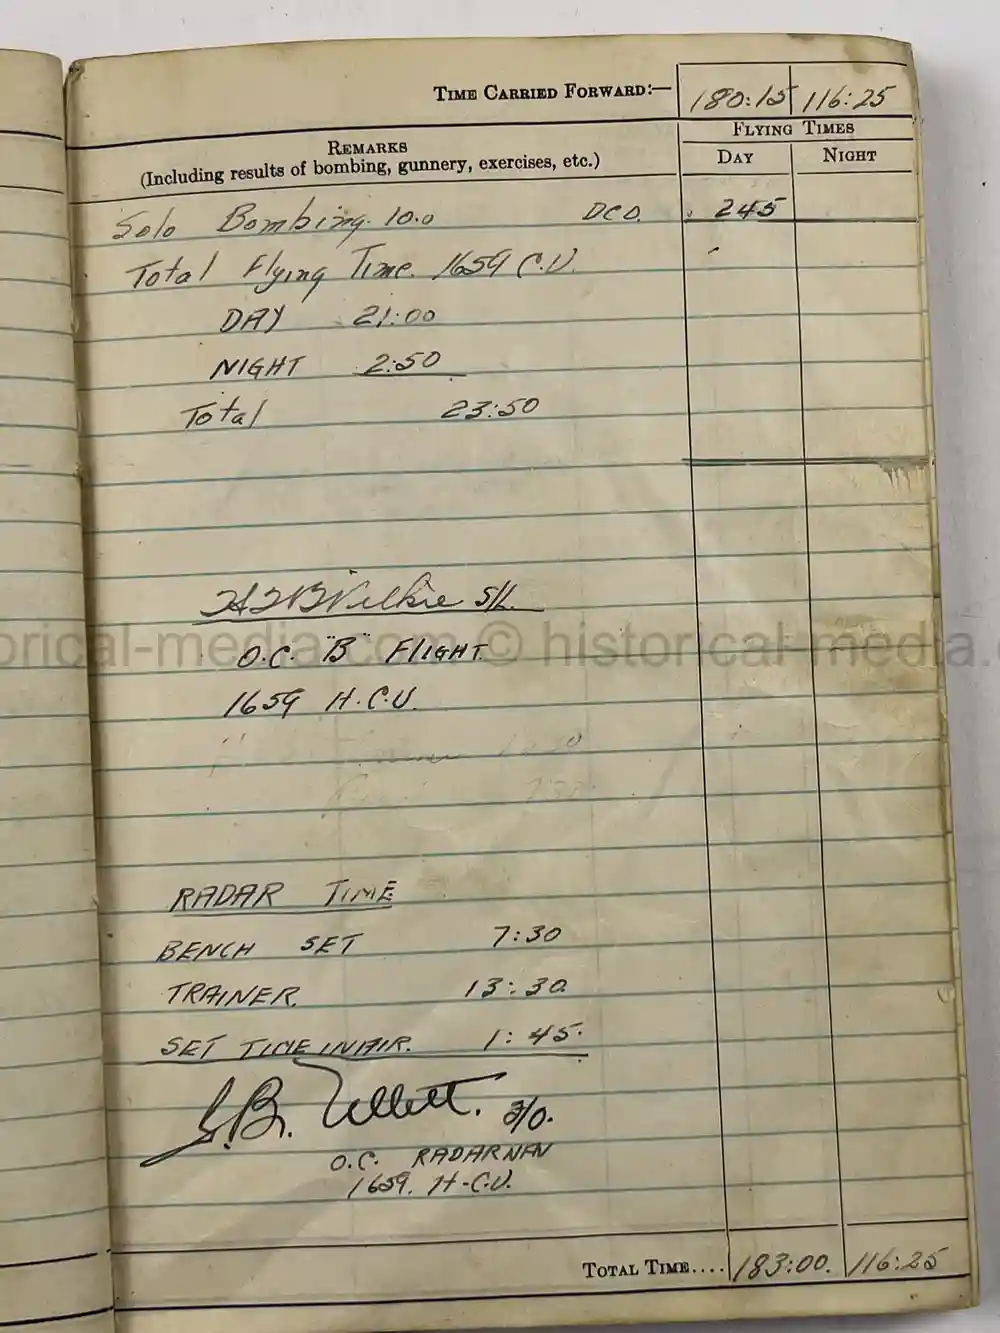 TIME CARRIED FORWARD:— 180:15 116:25
FLYING TIMES
REMARKS
(Including results of bombing, gunnery, exercises, etc.)
DAY NIGHT
Solo Bombing. 10.0 DCO. 245
Total Flying Time. 1659 C.U.
DAY 21:00
NIGHT 2:50
Total 23:50
Wilkie S/L.
O.C. "B" FLIGHT.
orical-media.com © historical-media.c
1659 H.C.U.
RADAR TIME
BENCH SET 7:30
TRAINER. 13:30.
SET TIME IN AIR. 1:45.
O.C. RADARNAV
1659. H-C.U.
TOTAL TIME.... 183:00. 116:25